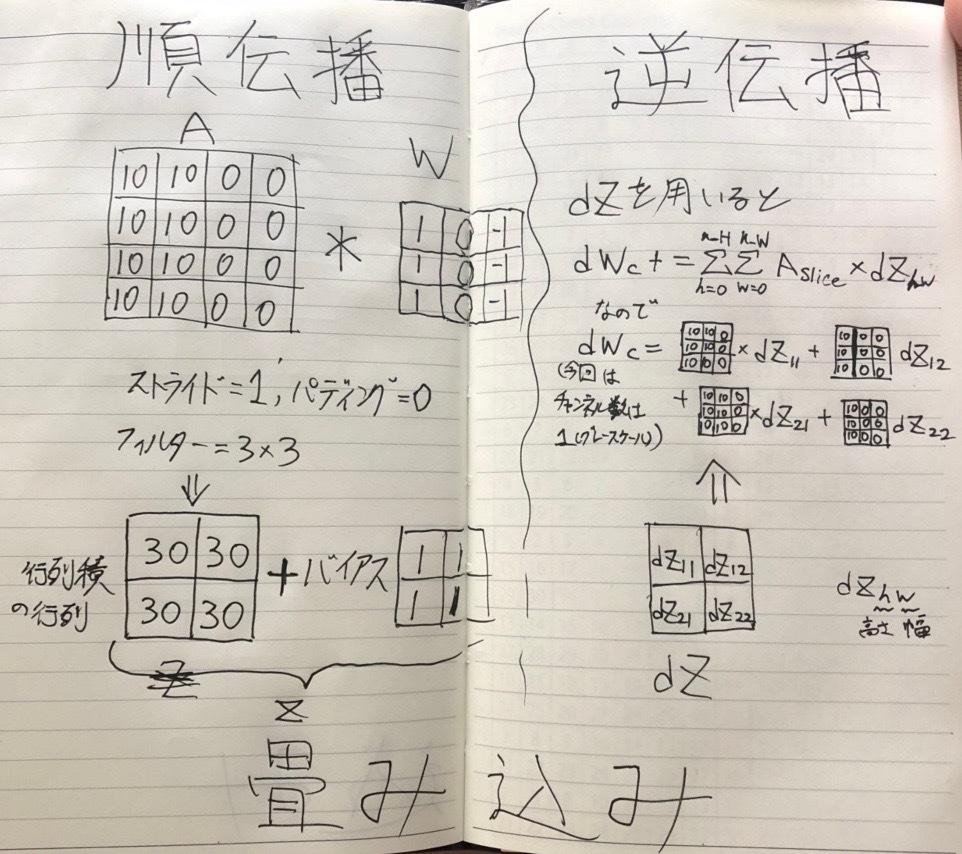 順伝播
A
W
10 10 0 0
10 10 0 0
10 10 0 0
10 10 0 0
*
1 0 -1
1 0 -1
1 0 -1
ストライド=1, パディング=0
フィルター=3×3
⇓
行列積
の行列
30 30
30 30
+バイアス
1 1
1 1
Z
逆伝播
dZを用いると
dWc += Σ Σ Aslice × dZhw
n-H n-W
h=0 w=0
なので
dWc =
10 10 0
10 10 0
10 10 0
× dZ11 +
10 0 0
10 0 0
10 0 0
dZ12
(今回は
チャンネル数は
1(グレースケール)
+
10 10 0
10 10 0
10 10 0
×dZ21 +
10 0 0
10 0 0
10 0 0
dZ22
⇑
dZ11 dZ12
dZ21 dZ22
dZ
dZhw
高さ 幅
畳み込み